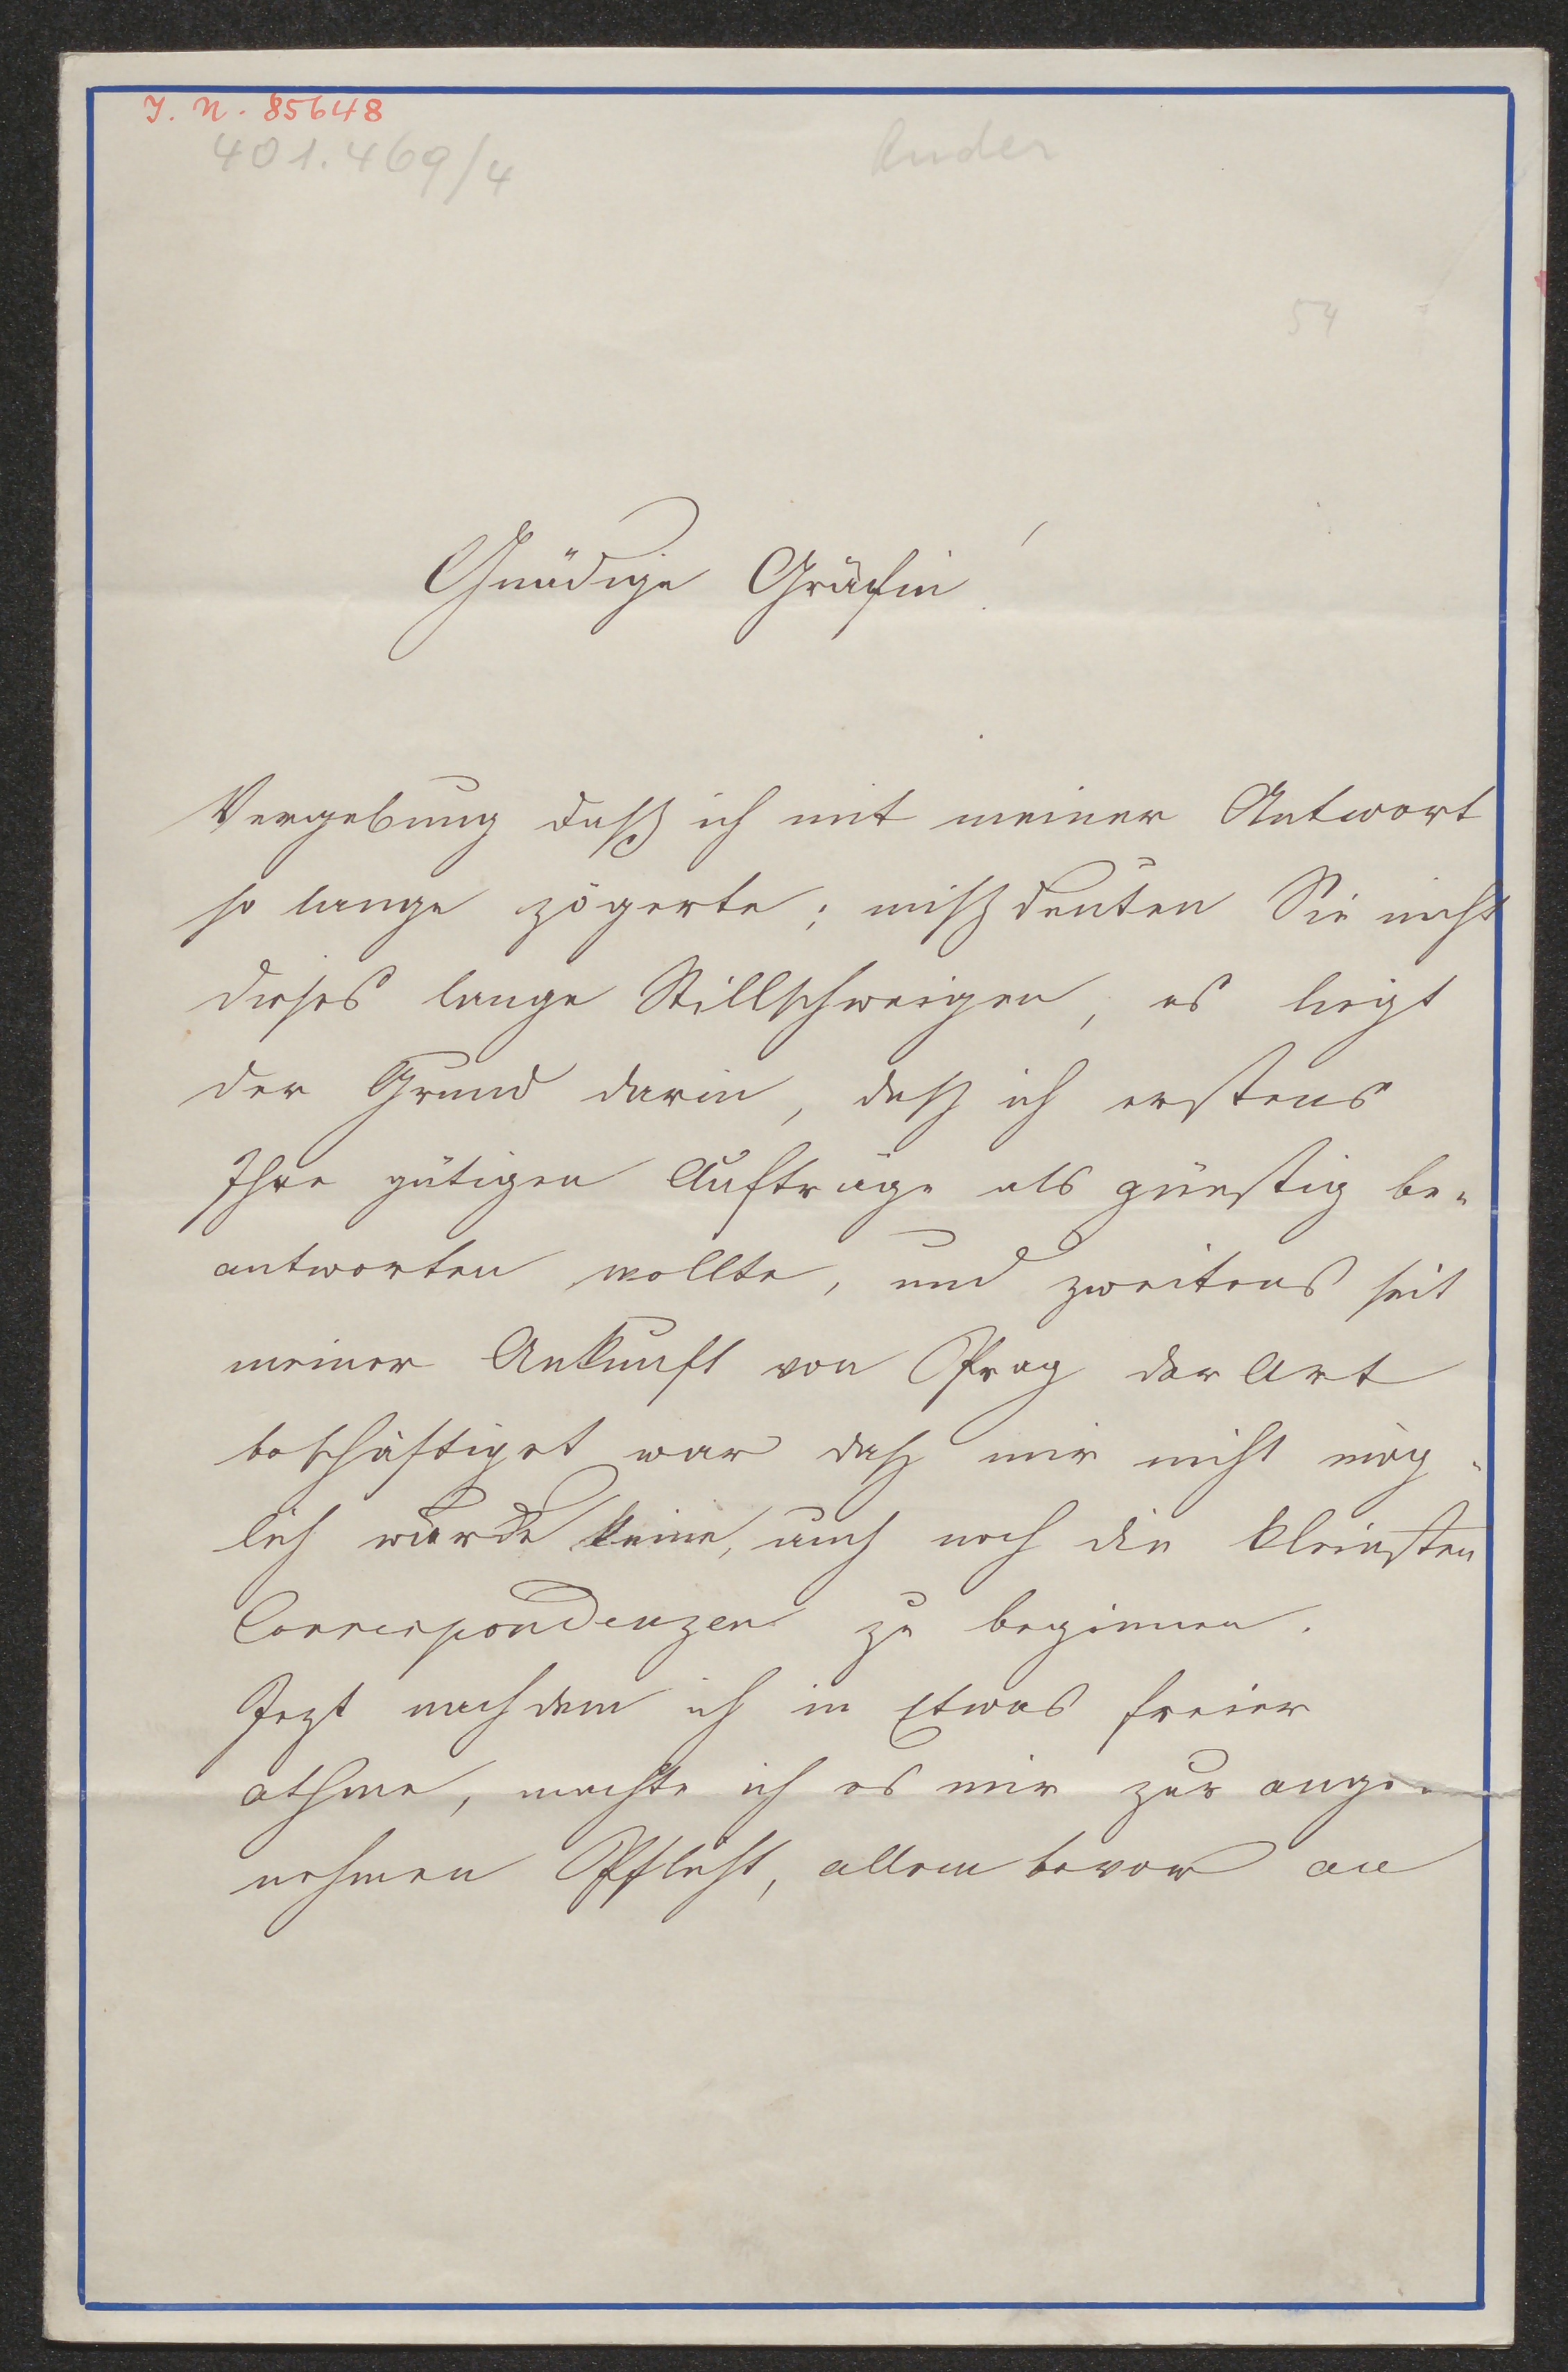 J. N. 85648
401.469/4
Ander
54
Gnädige Gräfin!
Vergebung daß ich mit meiner Antwort
so lange zögerte; mißdeuten Sie nicht
dieses lange Stillschweigen, es liegt
der Grund darin, daß ich erstens
Ihre gütigen Aufträge als günstig be-
antworten wollte, und zweitens seit
meiner Ankunft von Prag der Art
beschäftiget war daß mir nicht mög-
lich wurde keine, auch noch die kleinsten
Correspondenzen zu beginnen.
Jezt nachdem ich in Etwas freier
athme, machte ich es mir zur ange-
nehmen Pflicht, allem bevor an